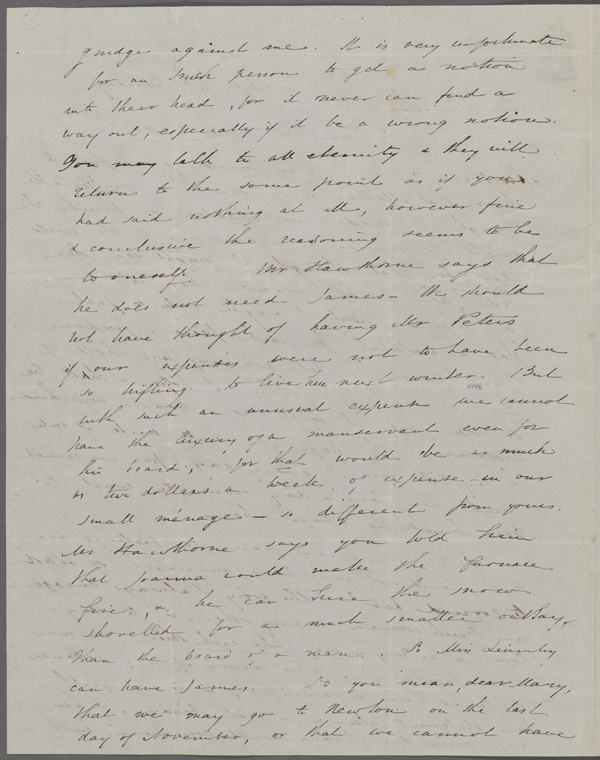 grudge against me. It is very unfortunate
for an Irish person to get a notion
into their head, for it never can find a
way out, especially if it be a wrong notion.
You may talk to all eternity & they will
return to the same point as if you
had said nothing at all, however fine
& conclusive the reasoning seems to be
to oneself. Mr Hawthorne says that
he does not need James — We should
not have thought of having Mr Peters
if our expenses were not to have been
so trifling to live here next winter. But
with such an unusual expense we cannot
have the luxury of a manservant even for
his board, for that would be as much
as two dollars a week of expense — in our
small ménage — so different from yours.
Mr Hawthorne says you told him
that Joanna could make the furnace
fire, & he can hire the snow
shovelled for a much smaller outlay,
than the board of a man. So Mrs
can have James. Do you mean, dear Mary,
that we may go to Newton on the last
day of November, or that we cannot have